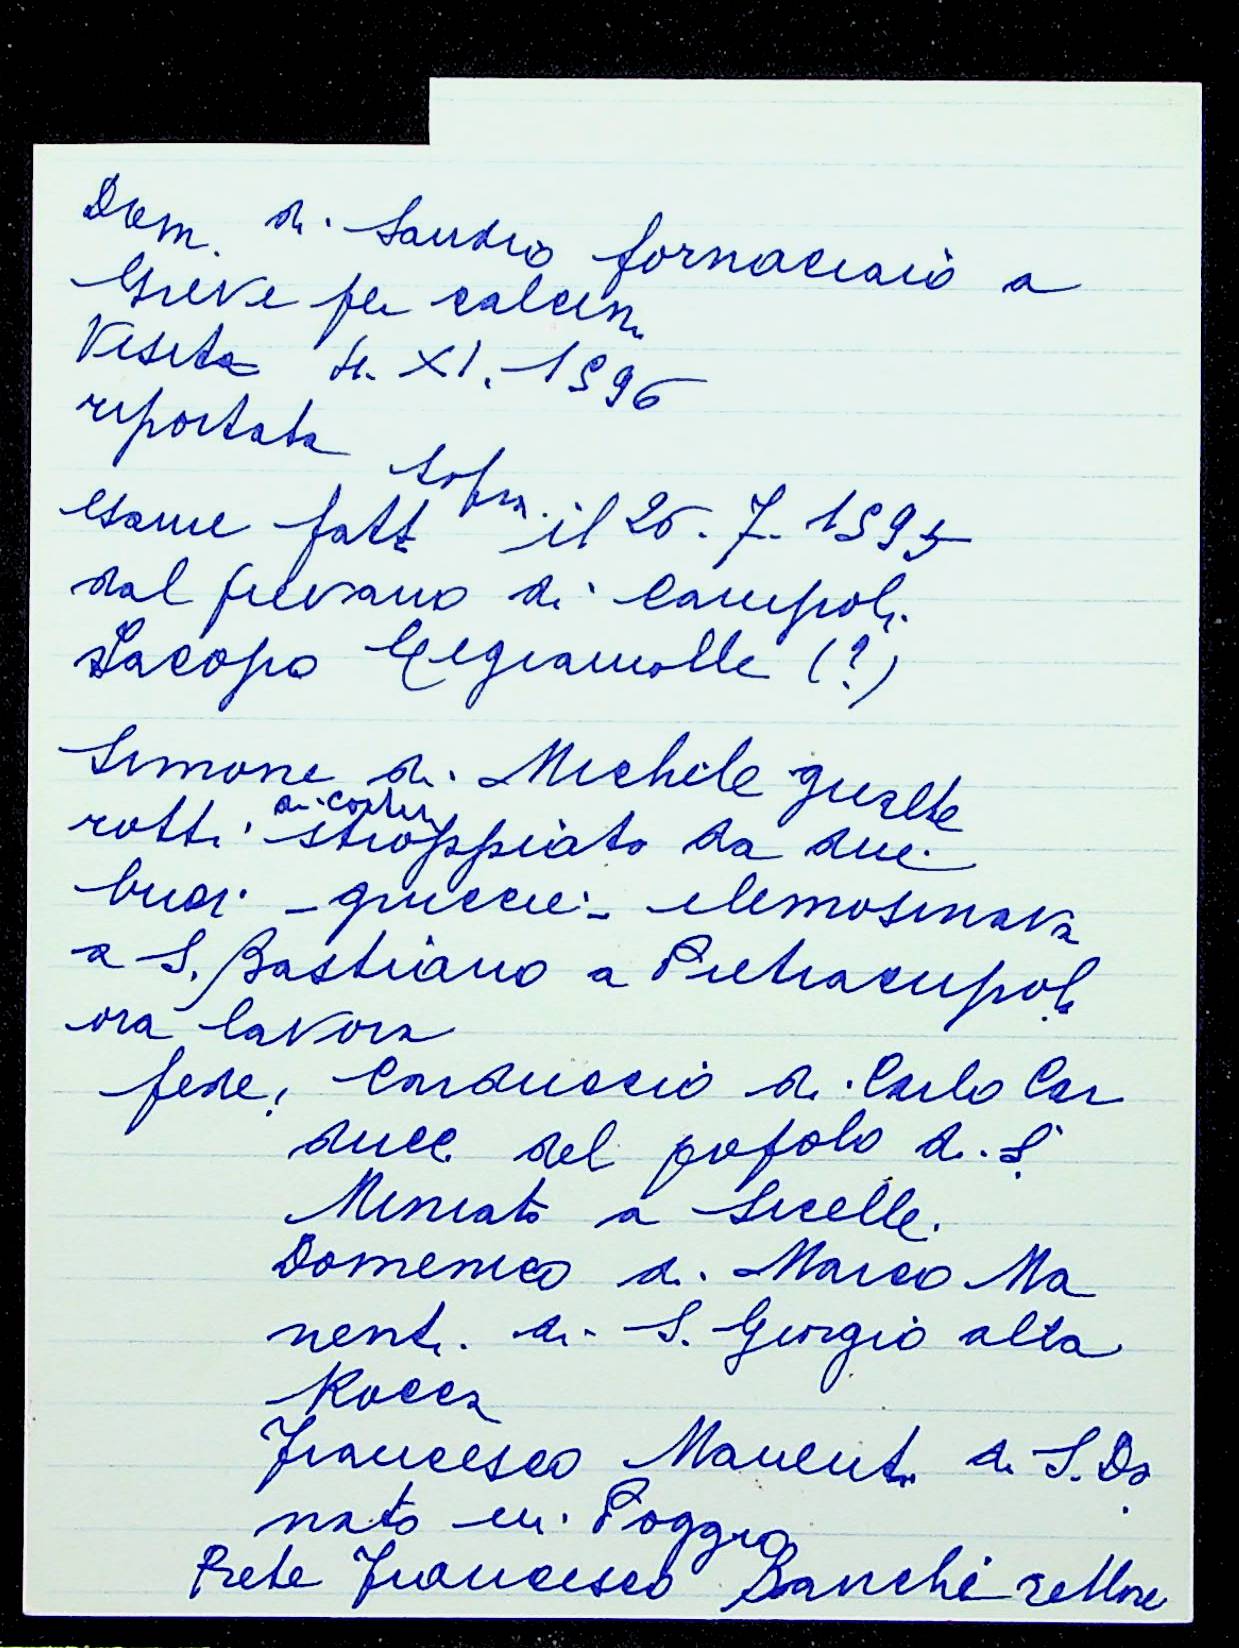 Dom. di Sandro fornaciaio a
Greve per calcin.
Visita 4. XI. 1596
riportata sopra.
esame fatto il 26. 7. 1595
dal pievano di Campoli
Iacopo (?)
Simone di Michele
rotti stroppiato da due
buoi - gruccie - elemosinava
a S. Bastiano a Pietracupola
ora lavora
fede: Carduccio di Carlo Car
ducci del popolo di S.
Miniato a Sicelle.
Domenico di Marco Ma
nenti di S. Giorgio alla
Rocca
Francesco Manenti di S. Do
nato in Poggio
Prete Francesco Banchi rettore